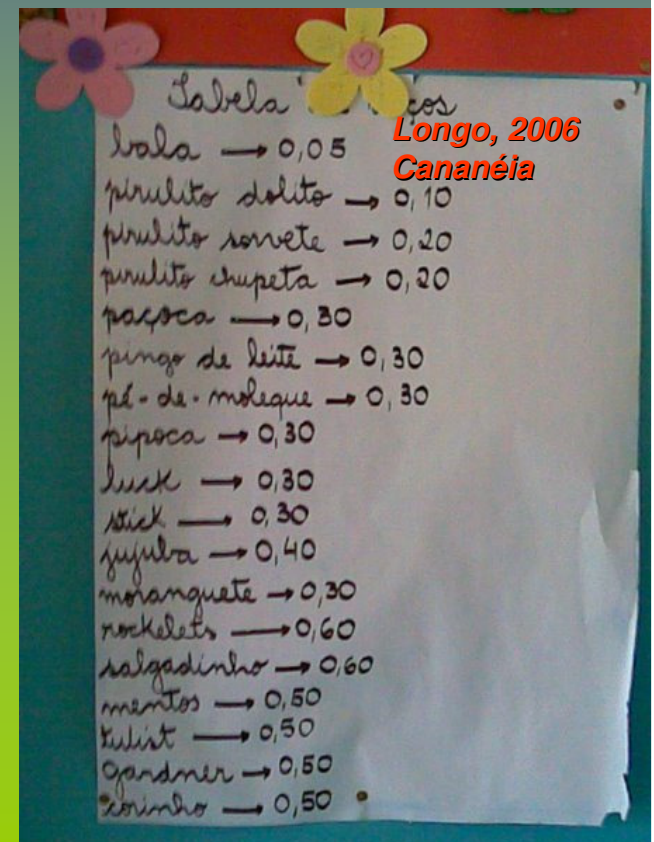 Tabela ços
Longo, 2006
Cananéia
bala → 0,05
pirulito dolito → 0,10
pirulito sorvete → 0,20
pirulito chupeta → 0,20
paçoca → 0,30
pingo de leite → 0,30
pé-de-moleque → 0,30
pipoca → 0,30
luck → 0,30
stick → 0,30
jujuba → 0,40
moranguete → 0,30
rockelets → 0,60
salgadinho → 0,60
mentos → 0,50
→ 0,50
gardner → 0,50
→ 0,50